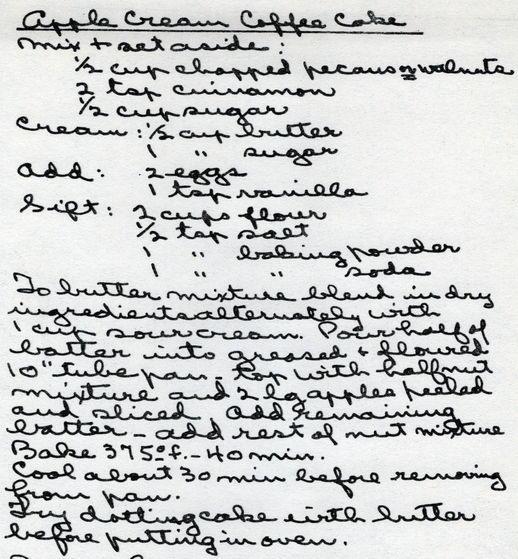 Apple Cream Coffee Cake
Mix + set aside:
1/2 cup chopped pecans or walnuts
2 tsp cinnamon
1/2 cup sugar
Cream: 1/2 cup butter
1 " sugar
Add: 2 eggs
1 tsp vanilla
Sift: 2 cups flour
1/2 tsp salt
1 " baking powder
1 " " soda
To butter mixture blend in dry
ingredients alternately with
1 cup sour cream. Pour half of
batter into greased + floured
10" tube pan. Top with half nut
mixture and 2 lg apples peeled
and sliced. Add remaining
batter - add rest of nut mixture
Bake 375° f. - 40 min.
Cool about 30 min before removing
from pan.
Try dotting cake with butter
before putting in oven.